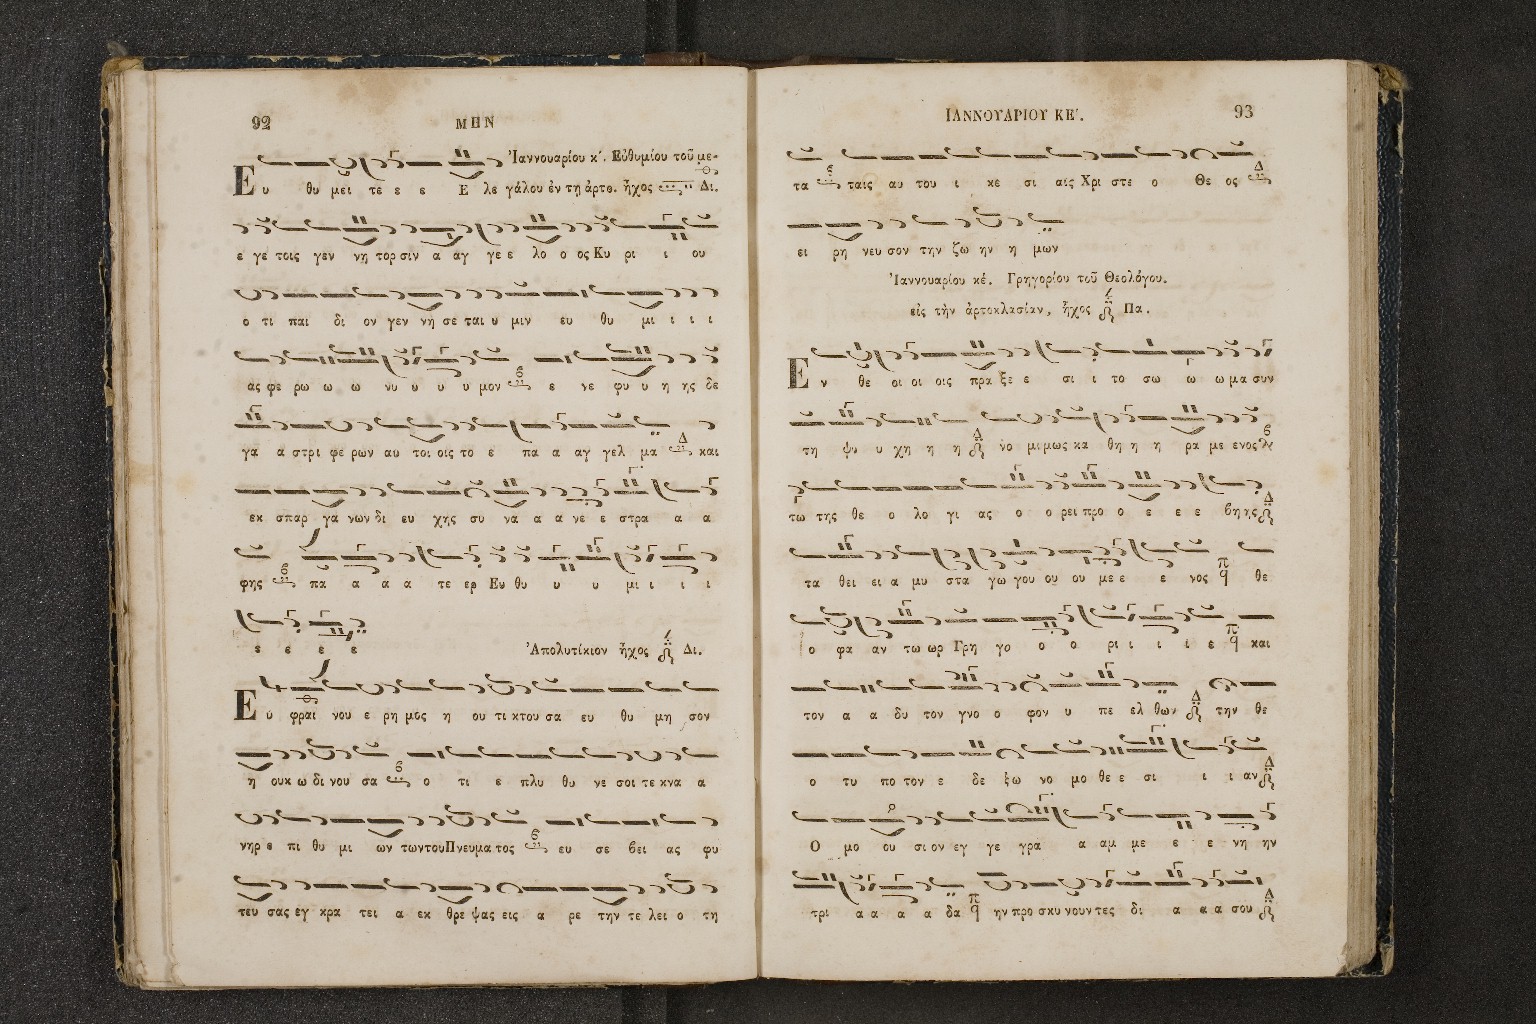 92 ΜΗΝ
Ἰαννουαρίου κ΄. Εὐθυμίου τοῦ με-
Ε υ θυ μει τε ε ε Ε λε γάλου ἐν τῇ ἀρτο. ἦχος Δι.
ε γε τοις γεν νη τορ σιν α αγ γε ε λο ο ος Κυ ρι ι ου
ο τι παι δι ον γεν νη σε ται υ μιν ευ θυ μι ι ι ι
ας φε ρω ω ω νυ υ υ υ μον ε νε φυ υ η ης δε
γα α στρι φε ρων αυ τοι οις το ε πα α αγ γελ μα και
εκ σπαρ γα νων δι ευ χης συ να α α νε ε στρα α α
φης πα α α α τε ερ Ευ θυ υ υ μι ι ι ι
ε ε ε ε Ἀπολυτίκιον ἦχος Δι.
Ε υ φραι νου ε ρη μος η ου τι κτου σα ευ θυ μη σον
η ουκ ω δι νου σα ο τι ε πλυ θυ νε σοι τε κνα α
νηρ ε πι θυ μι ων των του Πνευμα τος ευ σε βει ας φυ
τευ σας εγ κρα τει α εκ θρε ψας εις α ρε την τε λει ο τη
ΙΑΝΝΟΥΑΡΙΟΥ ΚΕ΄. 93
τα ταις αυ του ι κε σι αις Χρι στε ο Θε ος
ει ρη νευ σον την ζω ην η μων
Ἰαννουαρίου κέ. Γρηγορίου τοῦ Θεολόγου.
εἰς τὴν ἀρτοκλασίαν, ἦχος Πα.
Ε ν θε οι οι οις πρα ξε ε σι ι το σω ω ω μα συν
τη ψυ υ χη η η νο μι μως κα θη η η ρα με ενος
τω της θε ο λο γι ας ο ο ρει προ ο ε ε ε βη ης
τα θει ει α μυ στα γω γου ου ου με ε ε νος θε
ο φα αν τω ωρ Γρη γο ο ο ρι ι ι ι ε και
τον α α δυ τον γνο ο φον υ πε ελ θων την θε
ο τυ πο τον ε δε ξω νο μο θε ε σι ι ι αν
Ο μο ου σι ον εγ γε γρα α αμ με ε ε νη ην
τρι α α α α δα ην προ σκυ νουν τες δι α α α σου